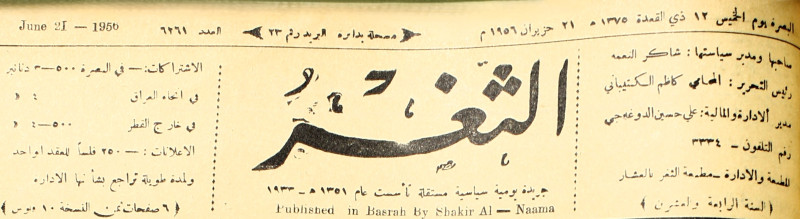 البصرة يوم الخميس ١٢ ذي القعدة ١٣٧٥ هـ ٢١ حزيران ١٩٥٦ م
مسجلة بدائرة البريد رقم ٢٣
العدد ٦٢٦١
June 21 – 1956
صاحبها ومدير سياستها : شاكر النعمه
رئيس التحرير : المحامي كاظم الكشيباني
مدير الادارة والمالية : علي حسين الدوغجي
رقم التلفون – ٣٣٣٤
المطبعة والادارة – مطبعة الثغر بالعشار
( السنة الرابعة والعشرون )
الثغر
جريدة يومية سياسية مستقلة تأسست عام ١٣٥١ هـ – ١٩٣٣
Published in Basrah By Shakir Al – Naama
الاشتراكات : – في البصرة ٥٠٠–٣ دنانير
في انحاء العراق ٤ »
في خارج القطر ٥٠٠–٤ »
الاعلانات : – ٢٥٠ فلساً للعقد الواحد
ولمدة طويلة تراجع بشأنها الادارة
( ٦ صفحات ثمن النسخة ١٠ فلوس )